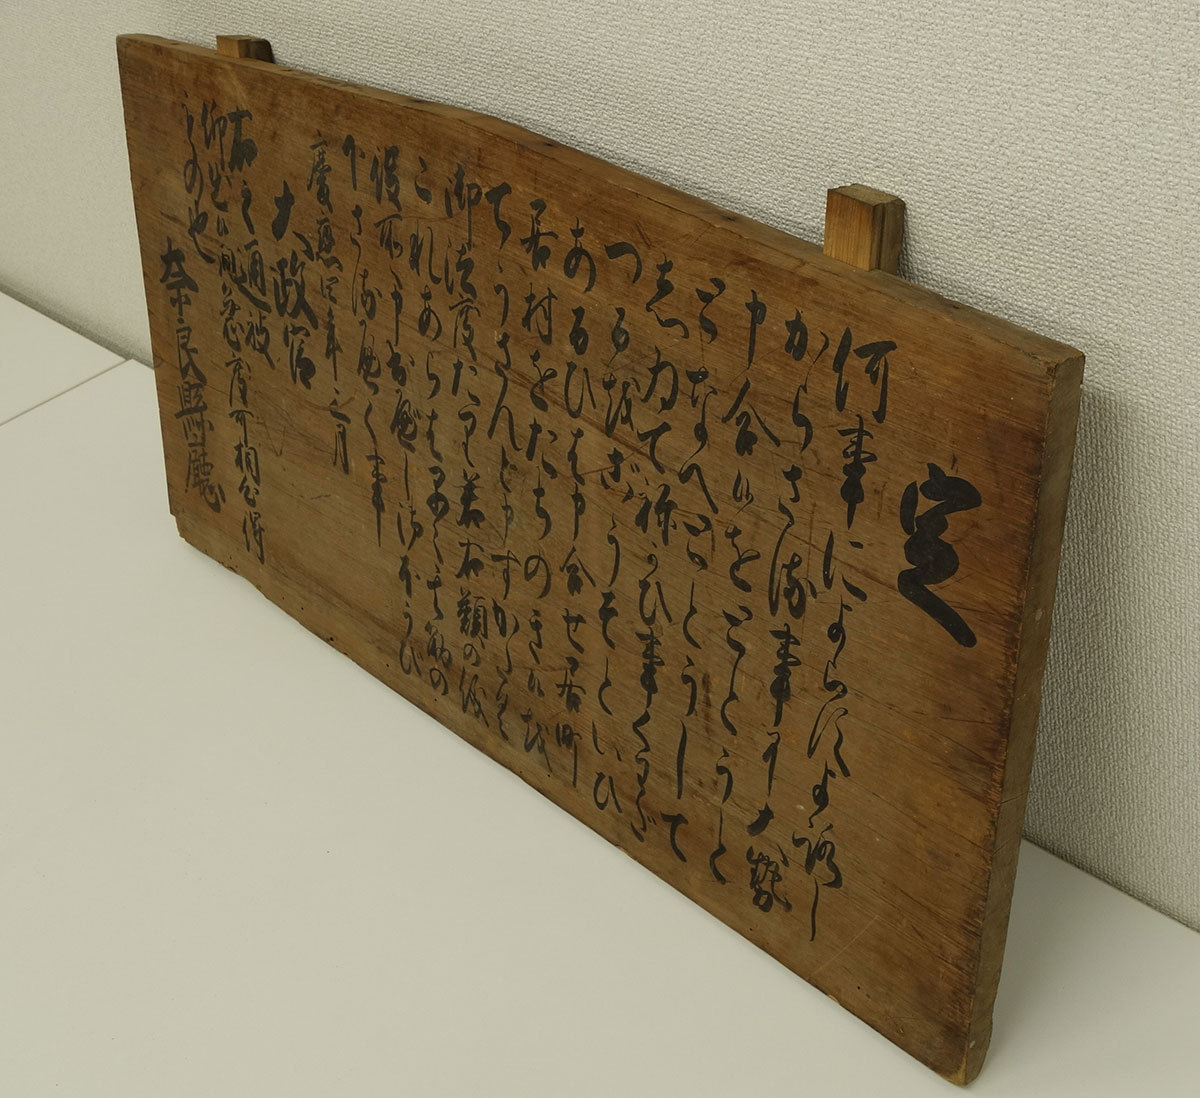 定
何事によらすよろしからさる事に大勢
申合候をととうと
となへととうして
しゐて祢かひ事くわだつるをごうそといひ
あるひハ申合せ居町
居村をたちのき候を
てうさんと申す
御法度たり若右類の儀
これあらハ早々其筋の
役所へ申出へし御ほうひ
下さるへく事
慶應四年三月
太政官
右之通被
仰出候
もの也
奈良縣廳